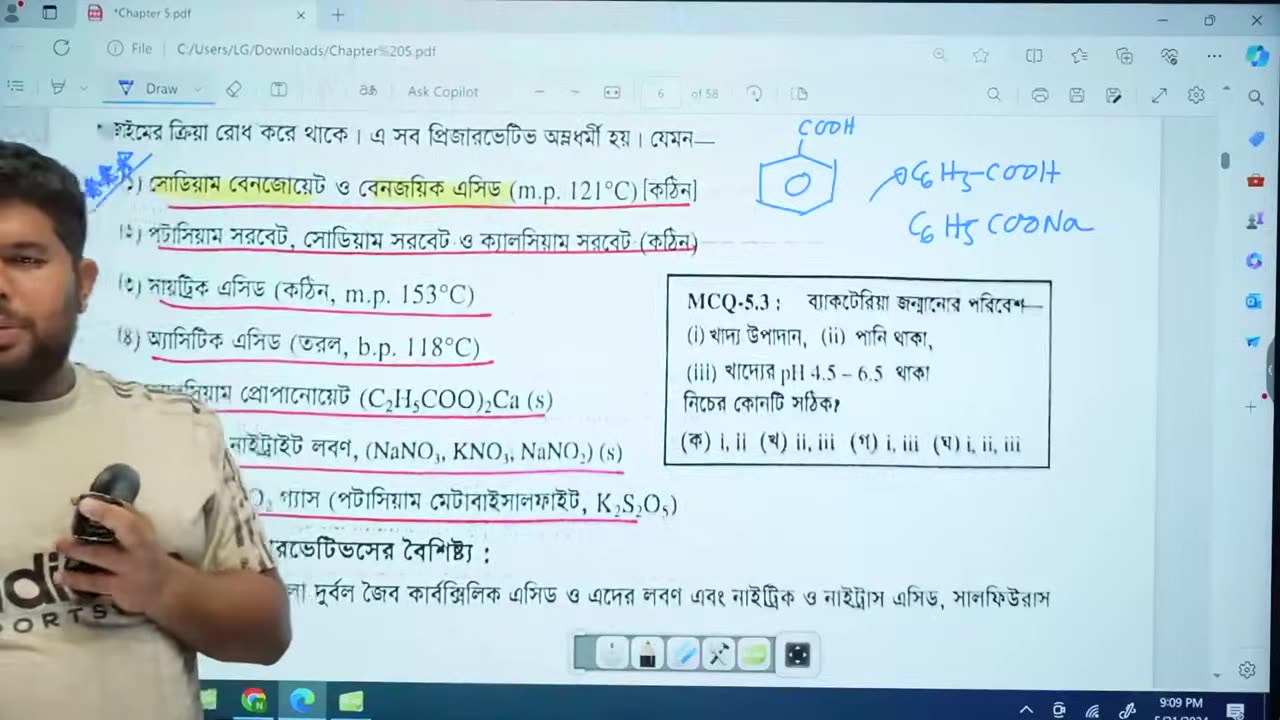 *Chapter 5.pdf
File C:/Users/LG/Downloads/Chapter%205.pdf
Draw Ask Copilot 6 of 58
ক্রিয়া রোধ করে থাকে। এ সব প্রিজারভেটিভ অম্লধর্মী হয়। যেমন—
সোডিয়াম বেনজোয়েট ও বেনজয়িক এসিড (m.p. 121°C) [কঠিন]
(২) পটাসিয়াম সরবেট, সোডিয়াম সরবেট ও ক্যালসিয়াম সরবেট (কঠিন)
(৩) সায়ট্রিক এসিড (কঠিন, m.p. 153°C)
(৪) অ্যাসিটিক এসিড (তরল, b.p. 118°C)
প্রোপানোয়েট (C₂H₅COO)₂Ca (s)
নাইট্রাইট লবণ, (NaNO₃, KNO₃, NaNO₂) (s)
গ্যাস (পটাসিয়াম মেটাবাইসালফাইট, K₂S₂O₅)
রভেটিভসের বৈশিষ্ট্য :
দুর্বল জৈব কার্বক্সিলিক এসিড ও এদের লবণ এবং নাইট্রিক ও নাইট্রাস এসিড, সালফিউরাস
COOH
C₆H₅-COOH
C₆H₅COONa
MCQ-5.3 : ব্যাকটেরিয়া জন্মানোর পরিবেশ—
(i) খাদ্য উপাদান, (ii) পানি থাকা,
(iii) খাদ্যের pH 4.5 – 6.5 থাকা
নিচের কোনটি সঠিক?
(ক) i, ii (খ) ii, iii (গ) i, iii (ঘ) i, ii, iii
adi
PORTS
9:09 PM